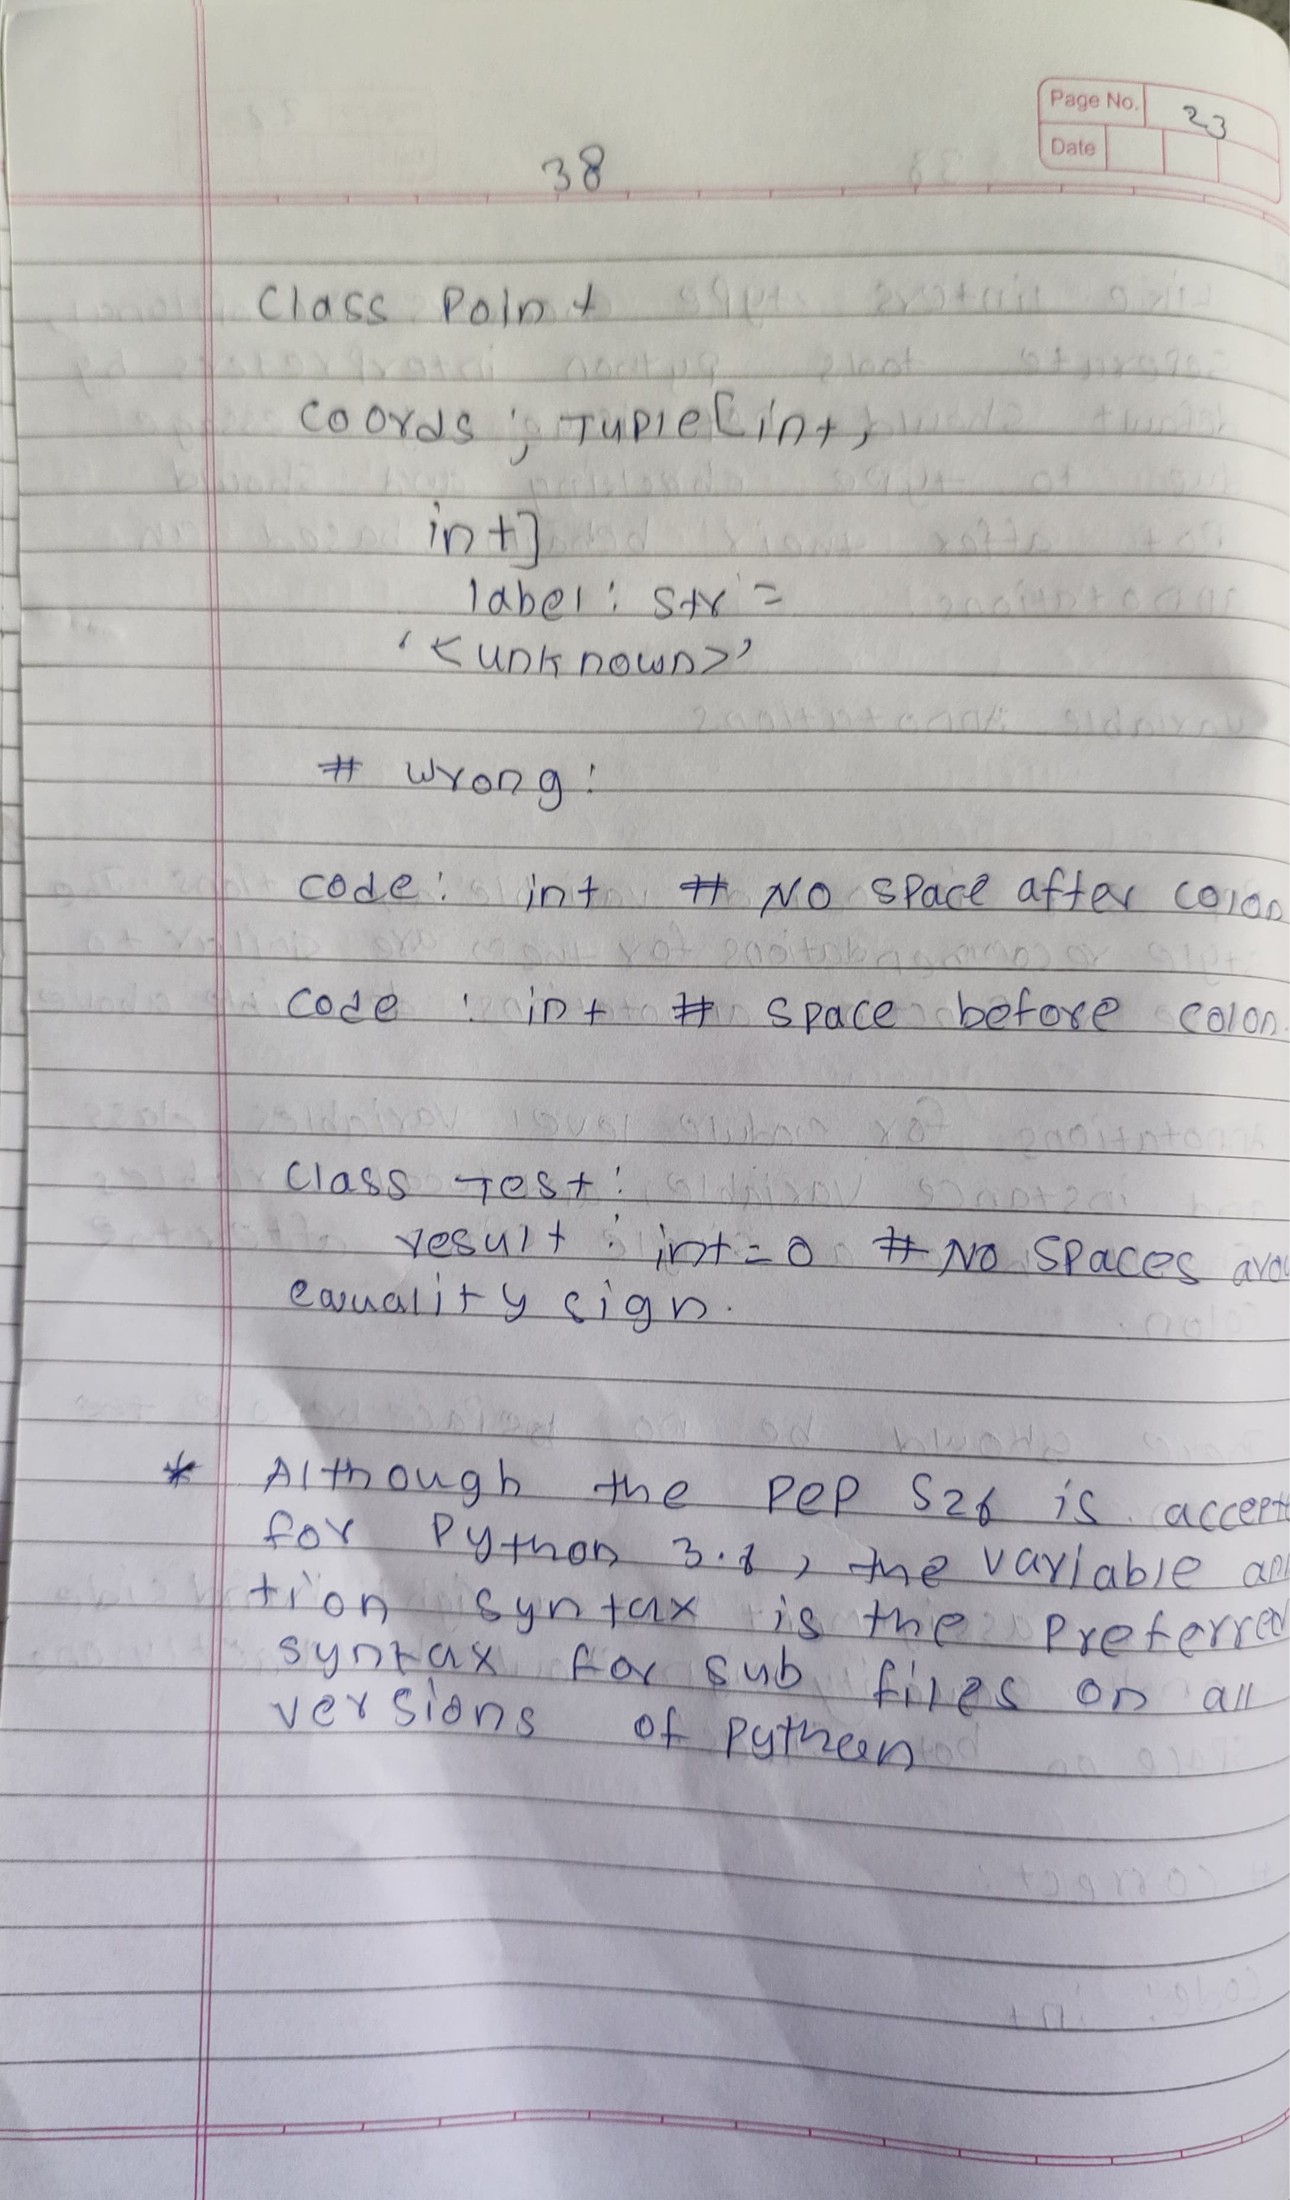 Page No. 23
Date
38
Class Point
Coords ; Tuple[int,
int]
label: str =
'<unknown>'
# wrong:
code: int # NO space after colon
code : int # space before colon.
Class Test:
result : int=0 # NO spaces arou
equality sign.
* Although the PEP 526 is accept
for Python 3.6, the variable an
tion syntax is the Preferred
syntax for sub files on all
versions of Pytheen